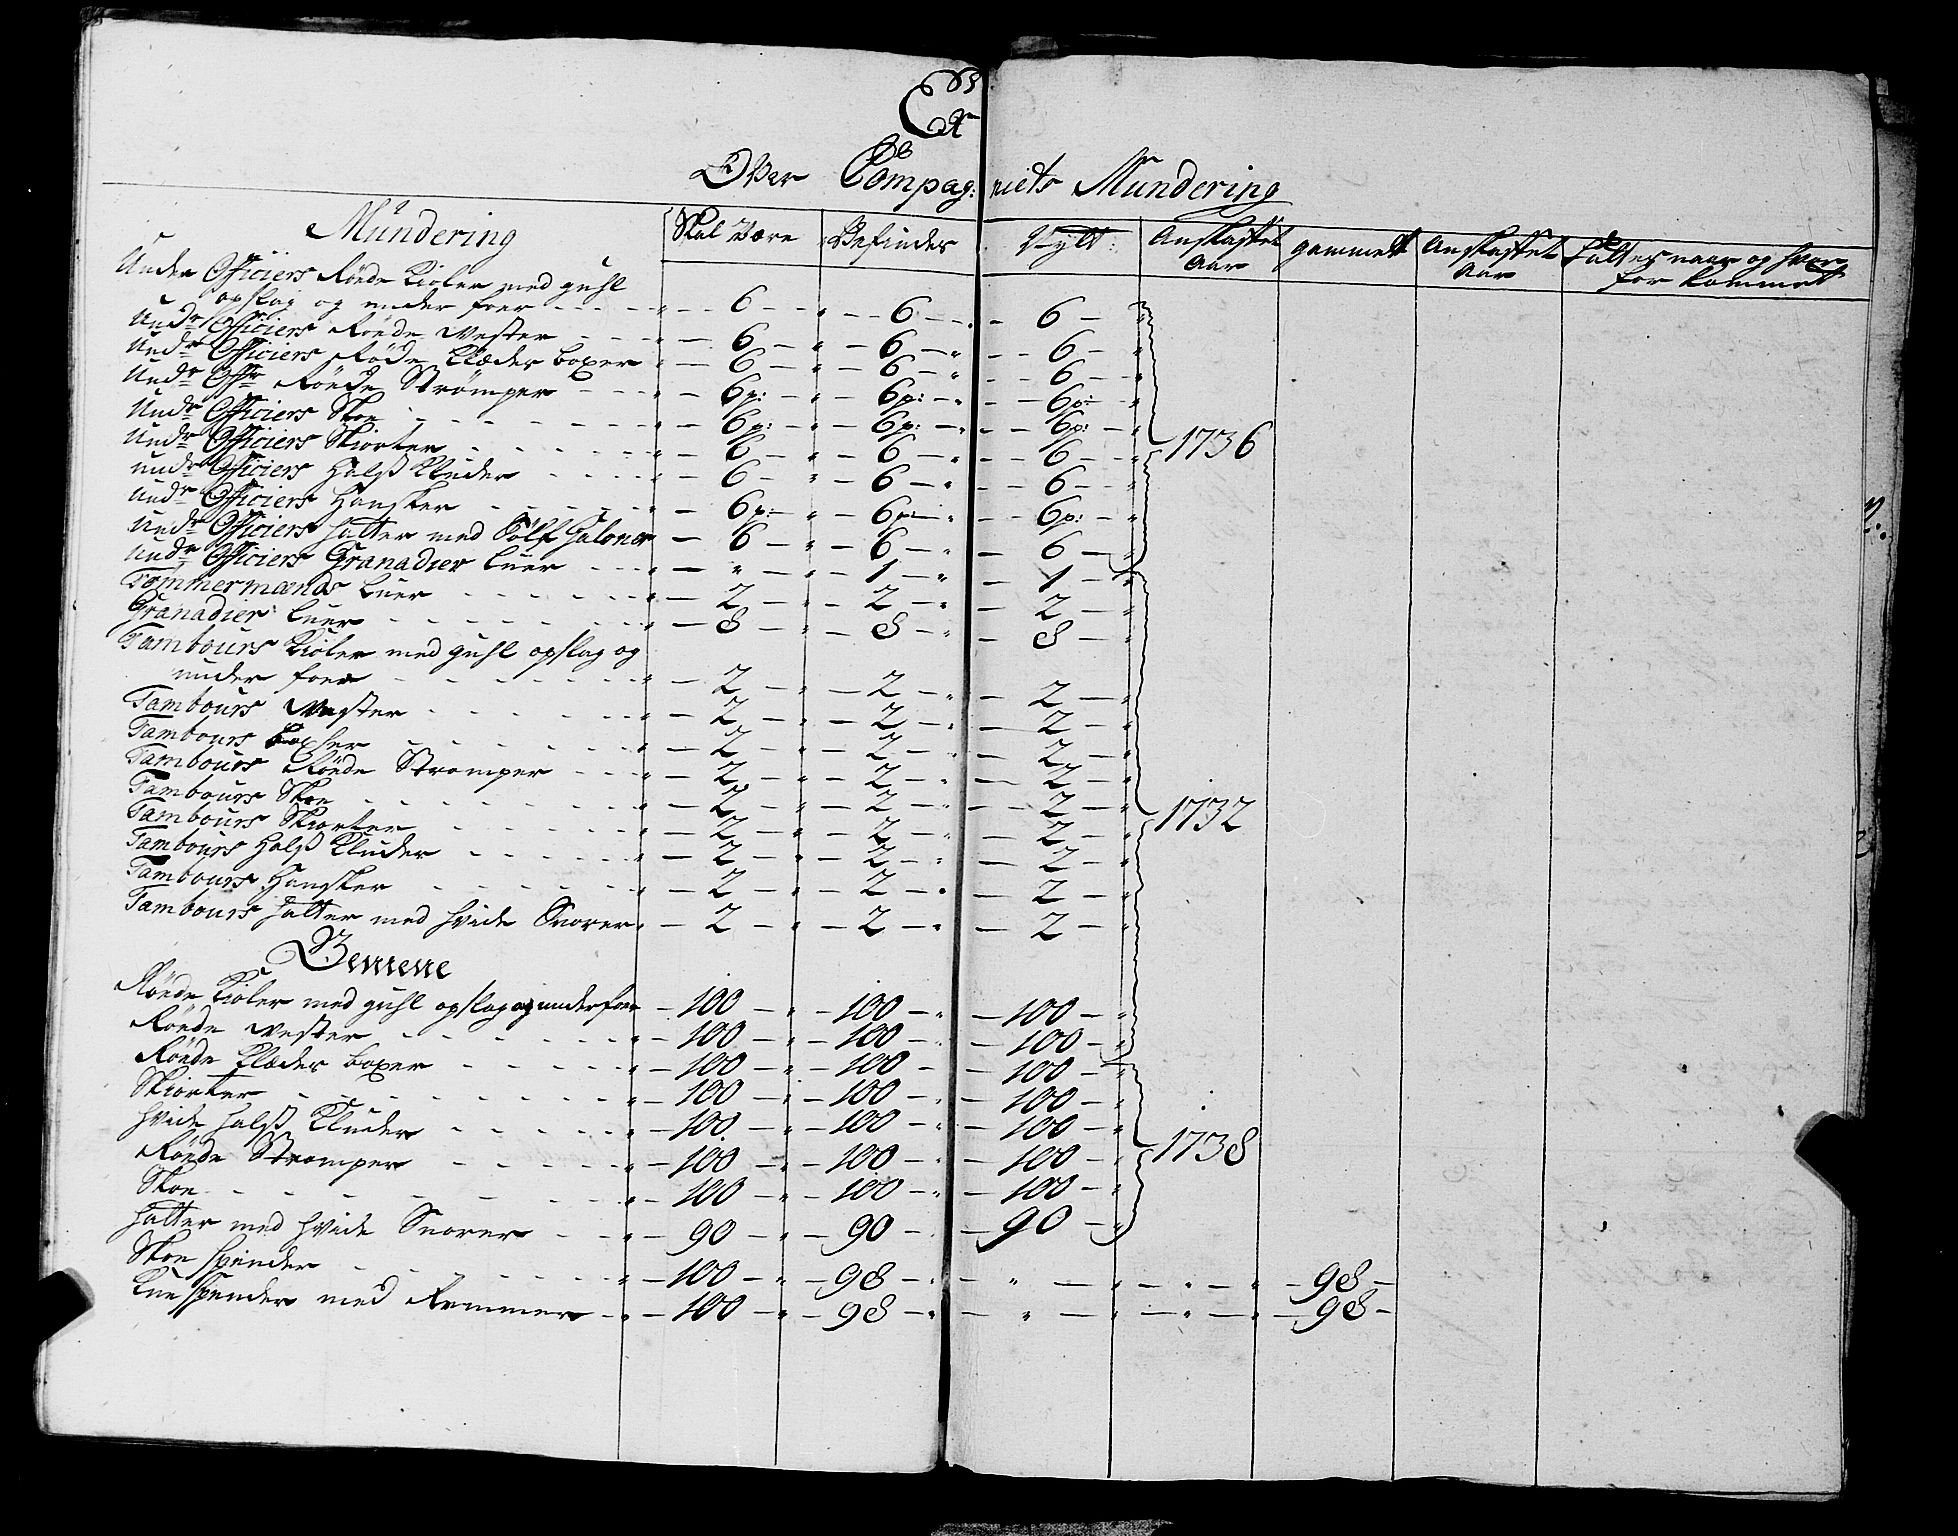 Over Compag: niets Mündering
Mündering Skal Være Befindes Nylt: Anskaffet Aar gammelt Anskaffet Aar fattes naar og hvor for kommet
Under Officiers Röede Kioler med guhl
opslag og under foer 6 6 6
Undr Officiers Röede Vester 6 6 6
Undr Officiers Röde Klædes boxer 6 6 6
Undr Offr Röede Strømper 6p: 6p: 6p:
Undr Officiers Skoe 6p: 6p: 6p:
Undr Officiers Skiorter 6 6 6 1736
undr Officiers Halss Kluder 6 6 6
undr Officiers Handsker 6p: 6p: 6p:
undr Officiers hatter med Sölf Galoner 6 6 6
undr Officiers Granadier Luer " 1 1
Tømmermænds Luer 2 2 2
Granadier Luer 8 8 8
Tambours Kioler med guhl opslag og
under foer 2 2 2
Tambours Vester 2 2 2
Tambours boxser 2 2 2
Tambours Röede Stromper 2 2 2
Tambours Skoe 2 2 2 1732
Tambours Skiorter 2 2 2
Tambours Halss Kluder 2 2 2
Tambours Handsker 2 2 2
Tambours hatter med hvide Snorer 2 2 2
Gemene
Röede Kioler med guhl opslag og underfoer 100 100 100
Röede Vester 100 100 100
Röede Klædes boxer 100 100 100
Skiorter 100 100 100
hvide halss Kluder 100 100 100
Röede Stromper 100 100 100 1738
Skoe 100 100 100
hatter med hvide Snorer 90 90 90
Skoe spender 100 98 " " 98
Knee spender med Remmer 100 98 " " 98